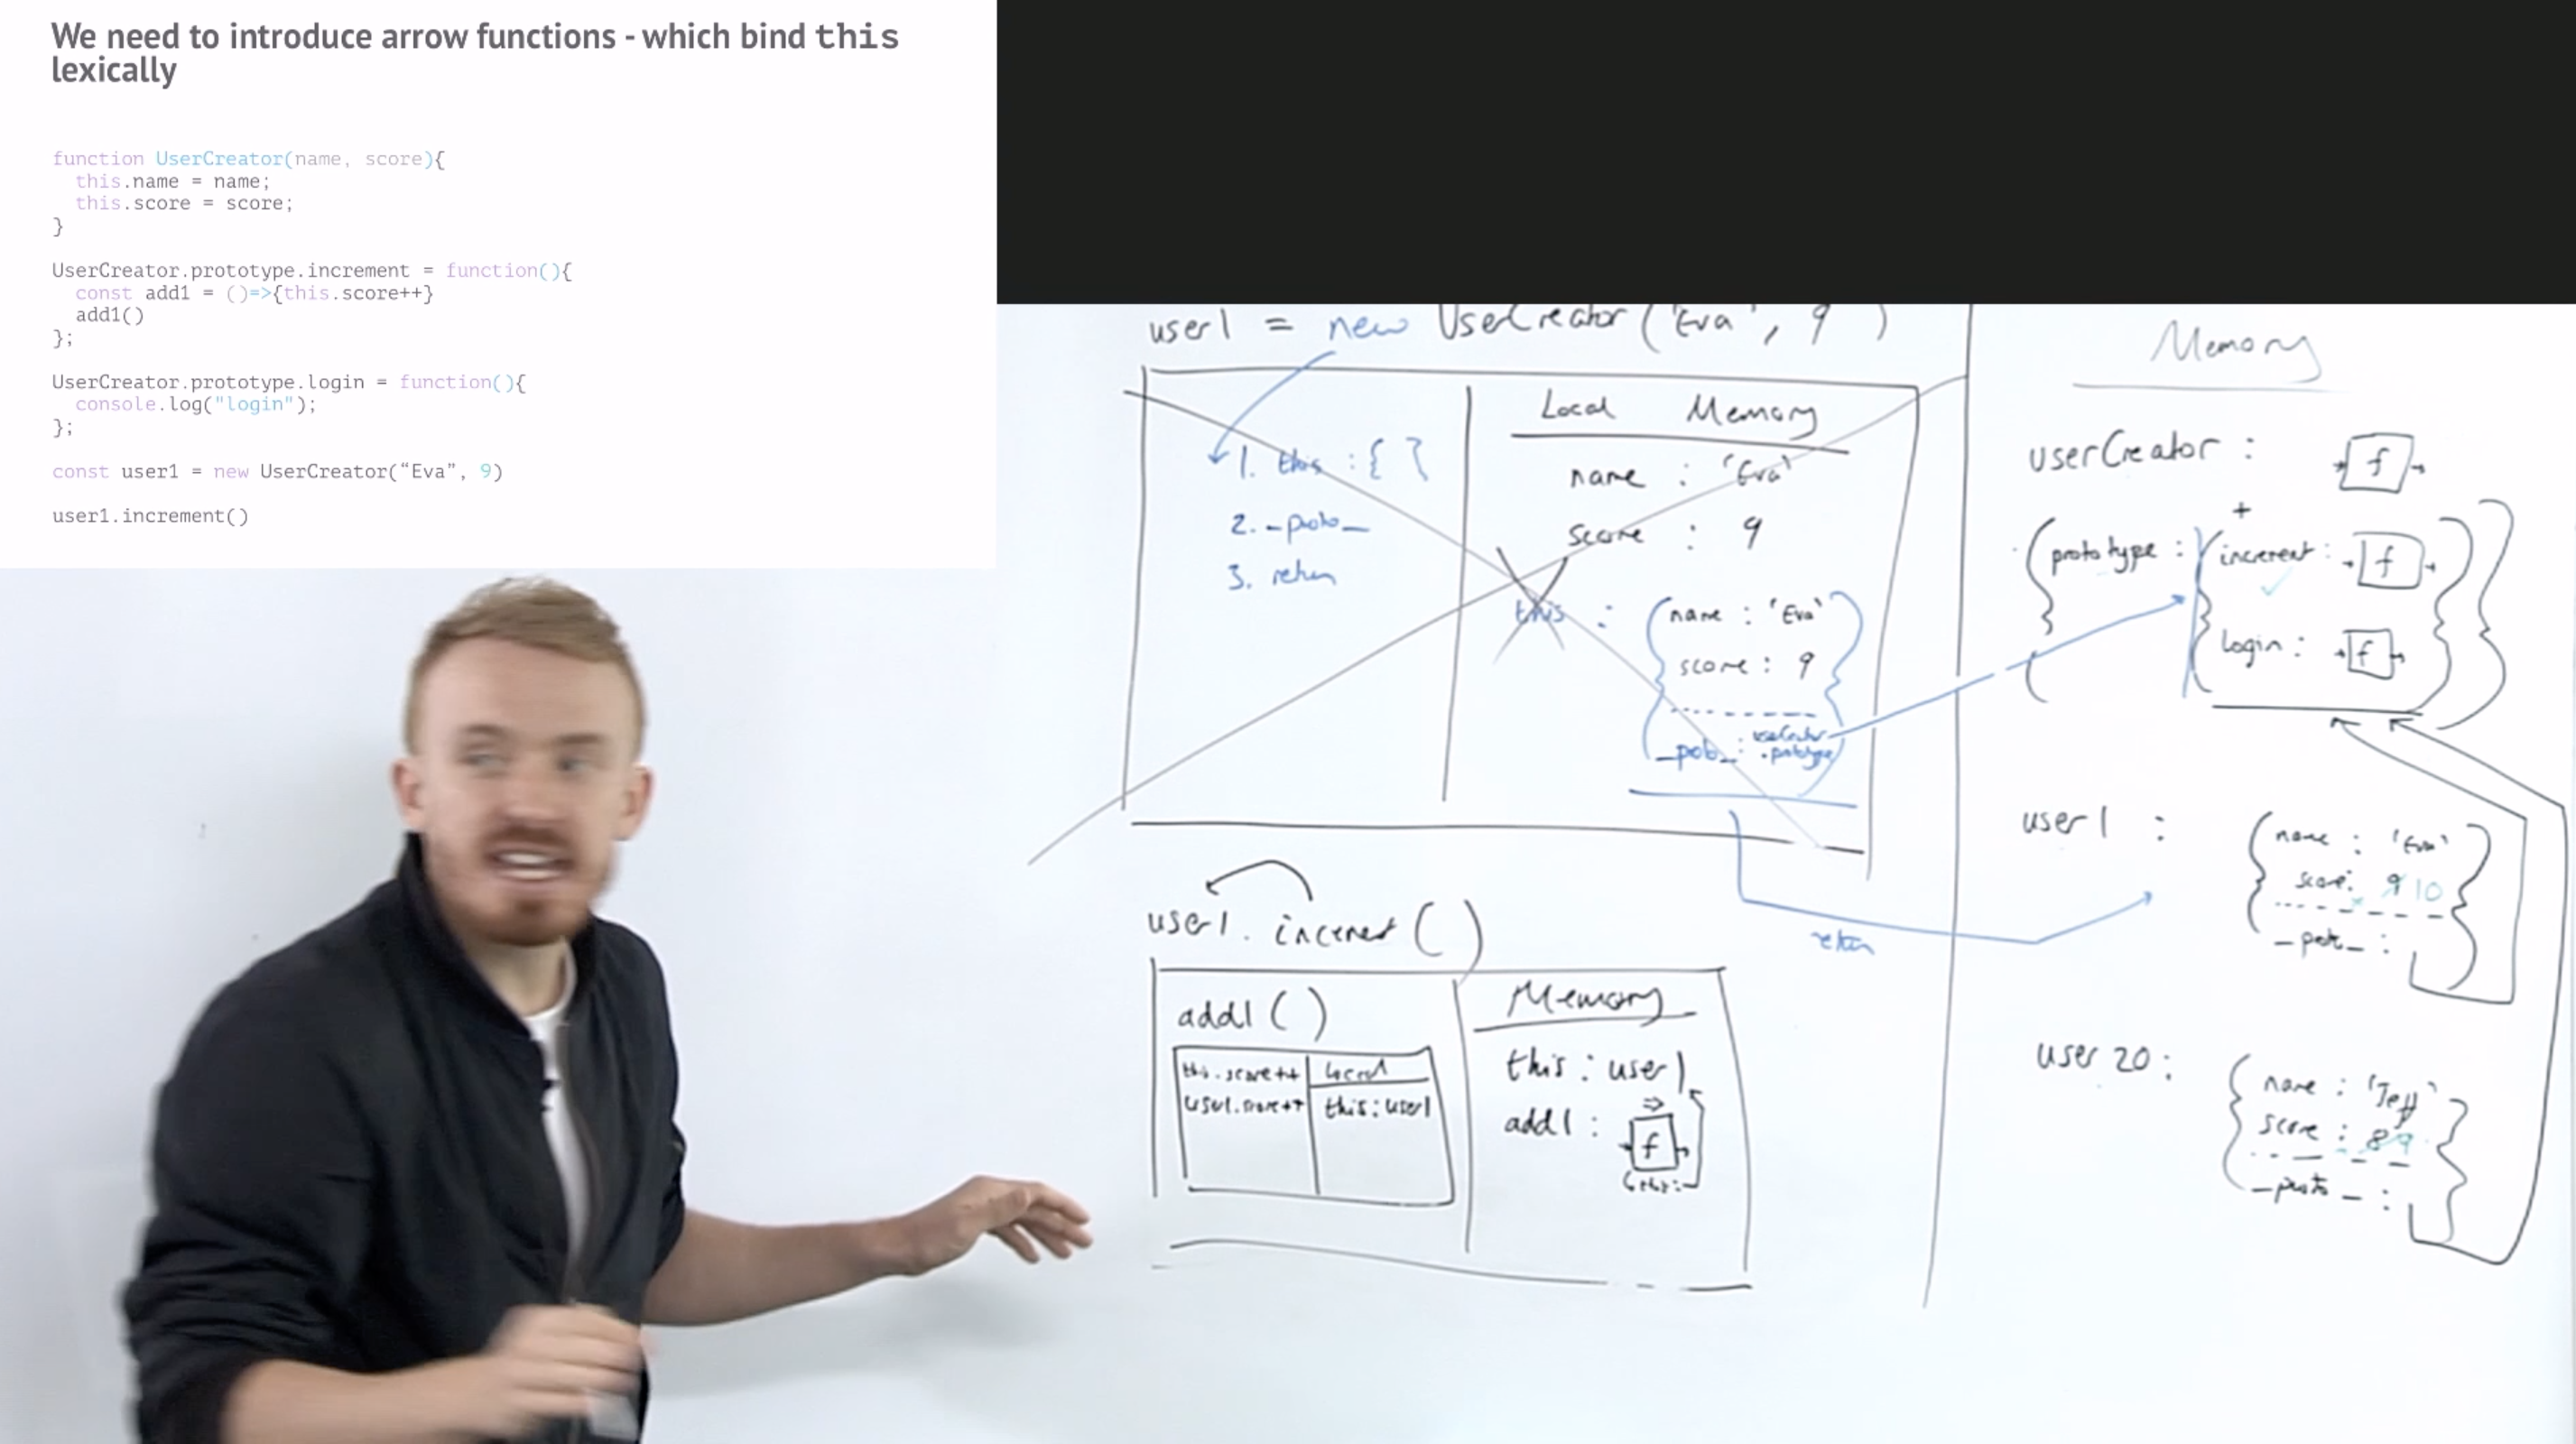 We need to introduce arrow functions - which bind this
lexically
function UserCreator(name, score){
this.name = name;
this.score = score;
}
UserCreator.prototype.increment = function(){
const add1 = ()=>{this.score++}
add1()
};
UserCreator.prototype.login = function(){
console.log("login");
};
const user1 = new UserCreator(“Eva”, 9)
user1.increment()
user1 = new UserCreator('Eva', 9)
1. this : { }
2. _proto_
3. return
Local Memory
name : 'Eva'
score : 9
this : { name : 'Eva'
score : 9
_proto_ : userCreator
.prototype }
return
user1.increment()
add1()
this.score++
user1.score++
local
this: user1
Memory
this : user1
add1 : f
⇒
Memory
userCreator : f
+
{ prototype : { increment : f
login : f } }
user1 : { name : 'Eva'
score : 9 10
_proto_ : }
user20 : { name : 'Jeff'
score : 8 9
_proto_ : }